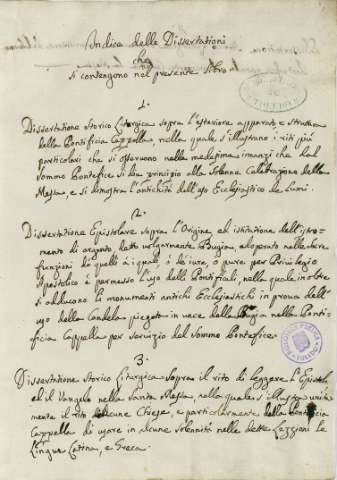 Indice delle Dissertationi
che
si contengono nel presente Libro
1.
Dissertatione Storico Liturgica sopra l'esteriore apparato, e struttura
della Pontificia Cappella, nella quale s'illustrano i riti più
particolari che si osservono nella medesima innanzi che dal
Sommo Pontefice si dia principio alla Solenne Celebrazione della
Messa, e si dimostra l'antichità dell'uso Ecclesiastico de Lumi.
2.
Dissertatione Epistolare sopra l'Origine, ed istitutione dell'istro-
mento di argento detto volgarmente Bugia, adoprato nelle sacre
funzioni da quelli à quali ò de iure, ò pure per Privilegio
Apostolico è permesso l'uso delli Pontificali, nella quale inoltre
si adducono li monumenti antichi Ecclesiastichi in prova dell'
uso della Candela piegata in vece della Bugia nella Ponti-
ficia Cappella per servizio del Sommo Pontefice.
3.
Dissertatione Storico Liturgica Sopra il rito di leggere l'Epistola
ed il Vangelo nella Santa Messa, nella quale s'illustra unita-
mente il rito alcune Chiese, e particolarmente della Pontificia
Cappella di usare in alcune Solennità nelle dette Lezzioni le
Lingue Latina, e Greca.
TOLEDO